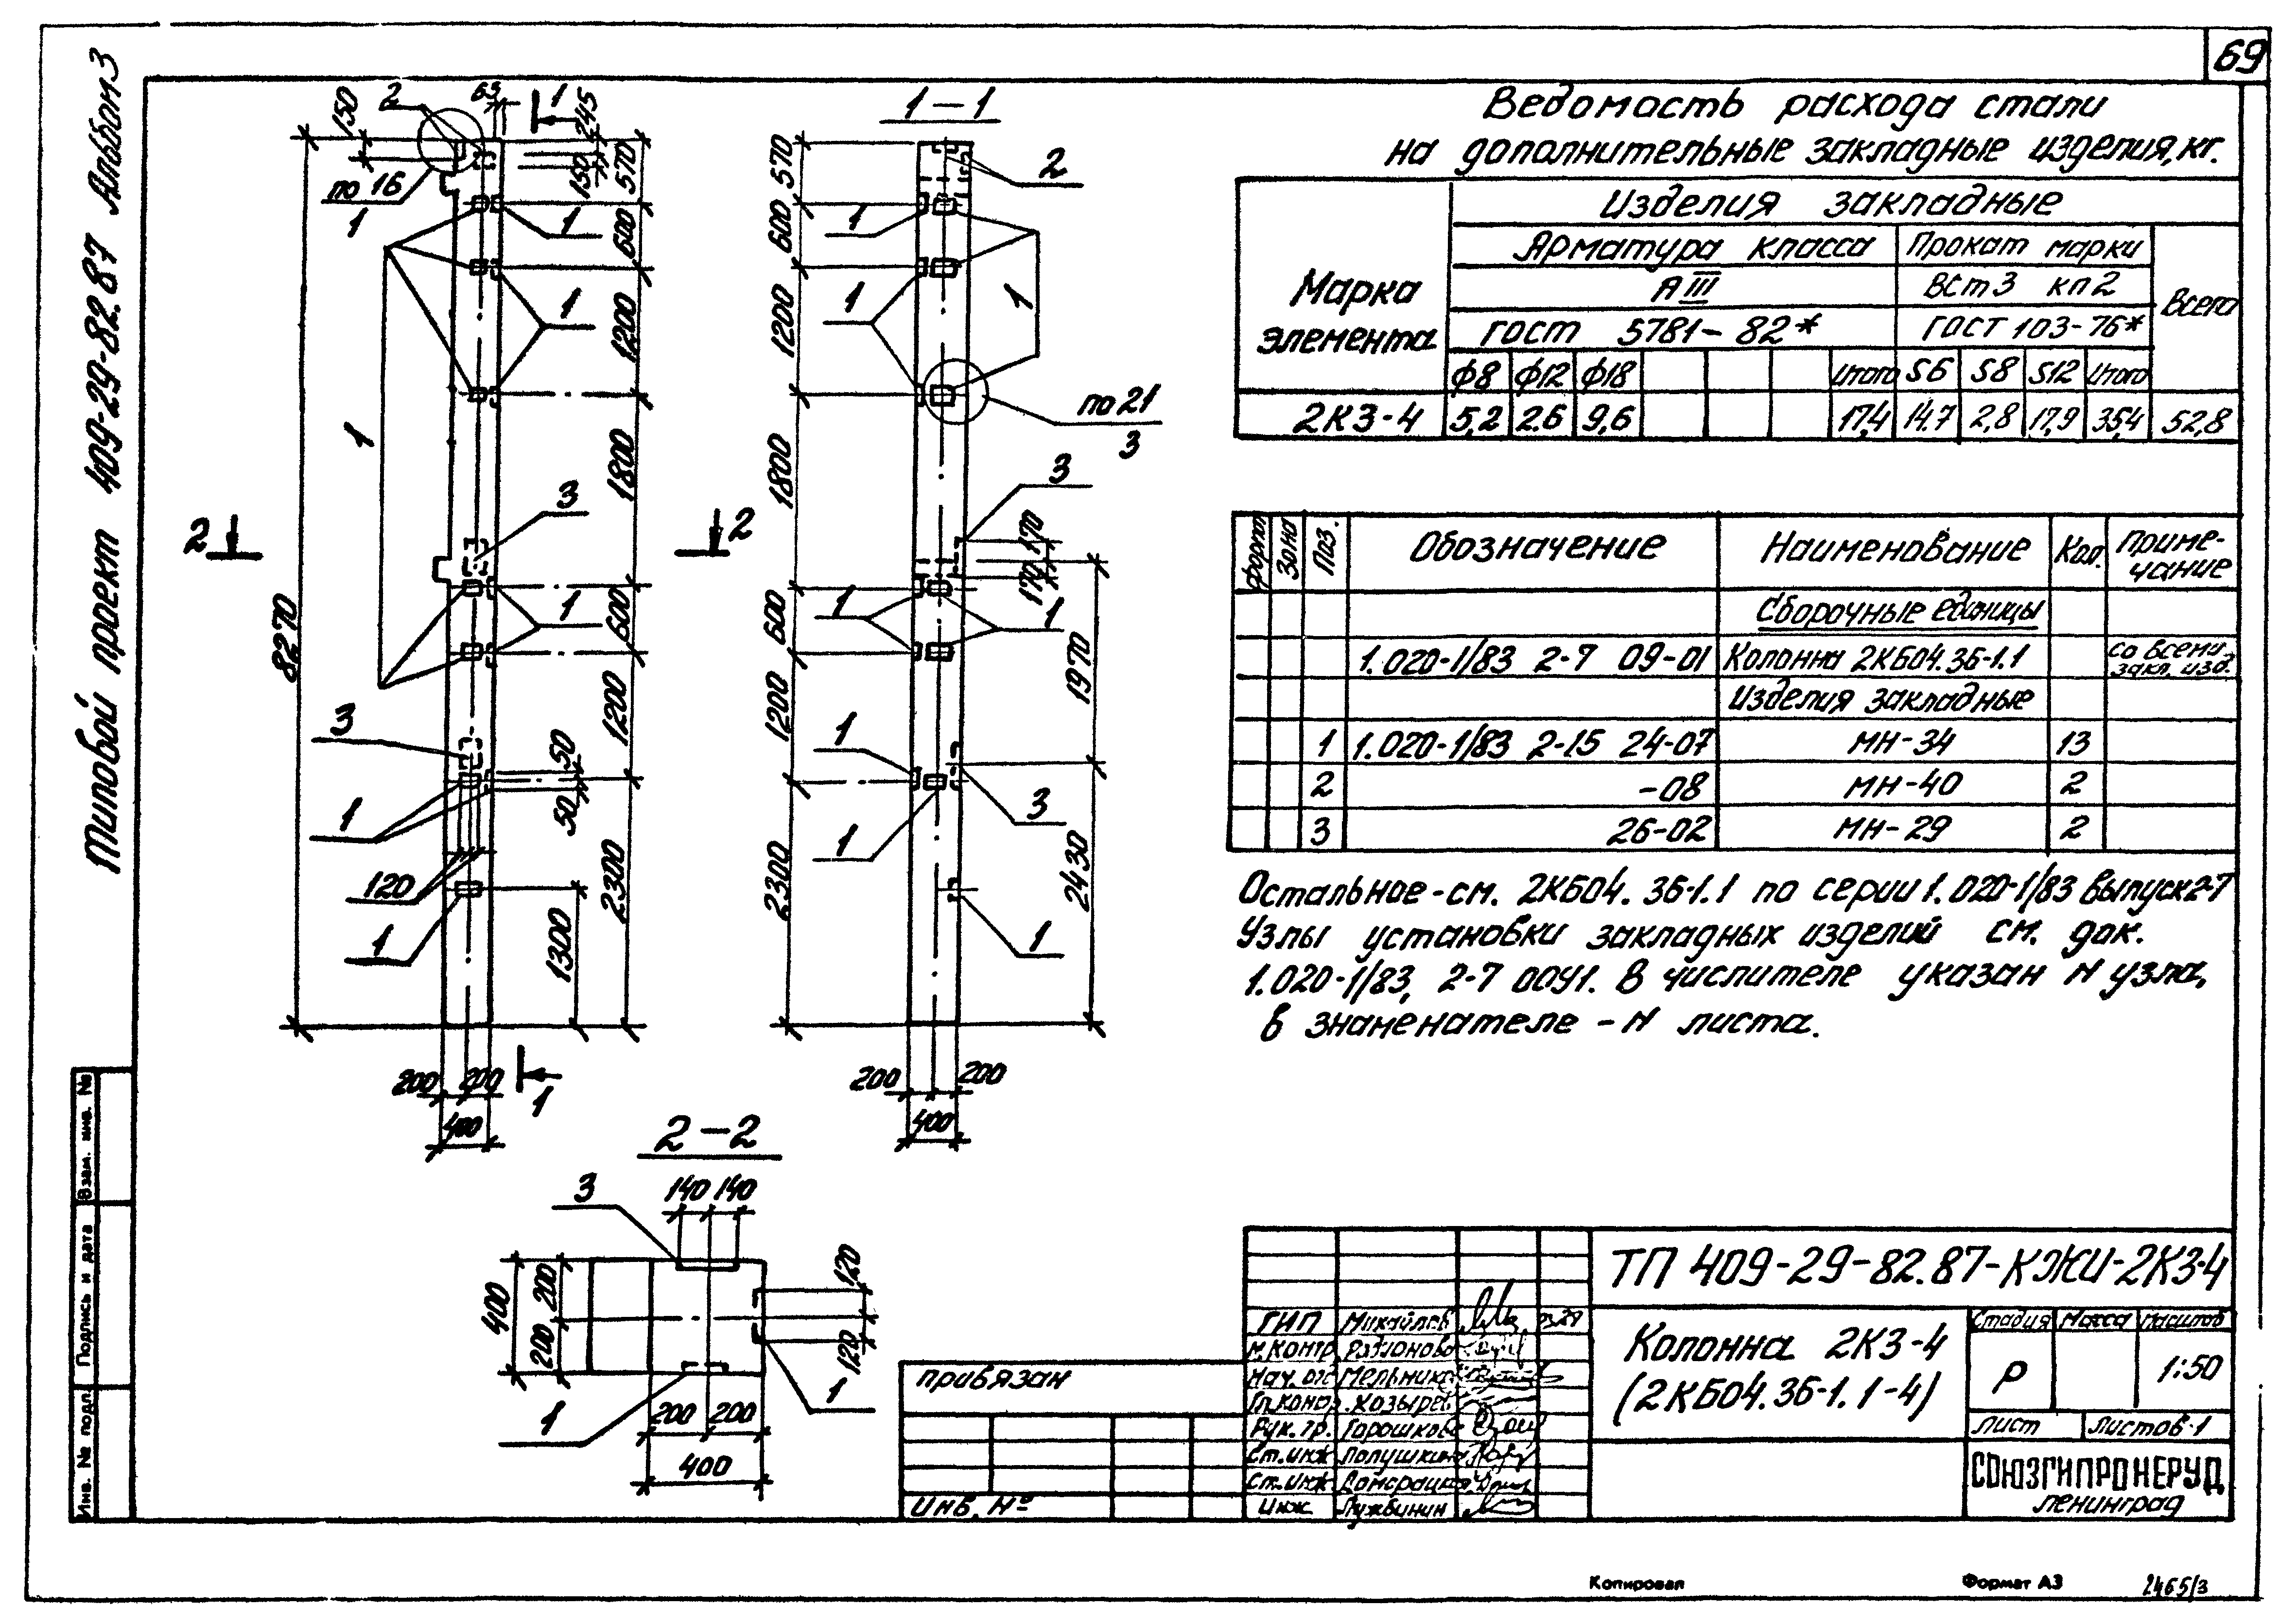 69
Типовой проект 409-29-82.87 Альбом 3
Ведомость расхода стали
на дополнительные закладные изделия, кг.
Марка элемента
Изделия закладные
Арматура класса
Прокат марки
Всего
А III
ВСт3 кп2
ГОСТ 5781-82*
ГОСТ 103-76*
ф8 ф12 ф18 Итого S6 S8 S12 Итого
2К3-4 5,2 2.6 9,6 17,4 14.7 2,8 17,9 35,4 52,8
формат Зона Поз. Обозначение Наименование Кол. Примечание
Сборочные единицы
1.020-1/83 2-7 09-01 Колонна 2КБ04.36-1.1 со всеми закл. изд.
Изделия закладные
1 1.020-1/83 2-15 24-07 МН-34 13
2 -08 МН-40 2
3 26-02 МН-29 2
Остальное - см. 2КБ04.36-1.1 по серии 1.020-1/83 выпуск 2-7
Узлы установки закладных изделий см. док.
1.020-1/83, 2-7 00У1. В числителе указан N узла,
в знаменателе - N листа.
150 2 63 1 245
150 570
по 16
1
1
600
1
1200
1
1800
3
2 2
8270
1
600
3
1200
50
50
1
120
2300
1
1300
200 200
400
1
1-1
570
2
600
1
1
1
1200
по 21
3
1800
3
170
170
1
1
600
1970
1200
1
3
1
2300
2430
1
200 200
400
2-2
3
140 140
400
200
200
120
120
1
1
200 200
400
ТП 409-29-82.87-КЖИ-2К3-4
Колонна 2К3-4
(2КБ04.36-1.1-4)
Стадия Масса Масштаб
Р 1:50
Лист Листов 1
СОЮЗГИПРОНЕРУД
Ленинград
ГИП Михайлов
Н.контр. Родионова
Нач. отд. Мельников
Гл.контр. Козырев
Рук. гр. Горошков
Ст.инж. Полушкина
Ст.инж.
Инж. Лужбинин
Привязан
Инв. №
Взам. инв. №
Подпись и дата
Инв. № подл.
Копировал
Формат А3
2465/3